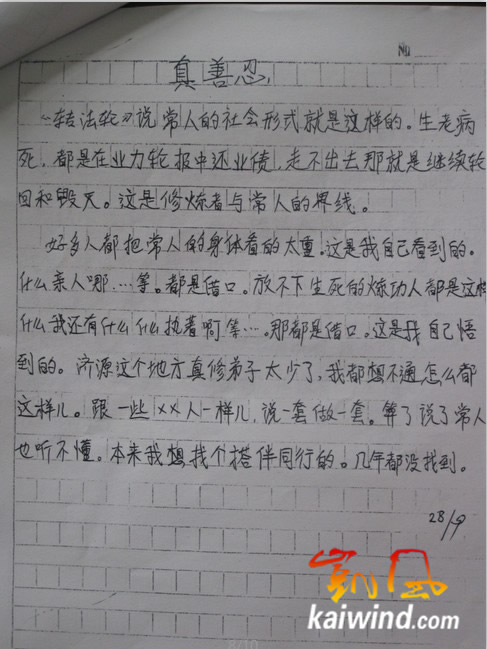 No
真善忍
《转法轮》说常人的社会形式就是这样的。生老病
死,都是在业力轮报中还业债,走不出去那就是继续轮
回和毁灭。这是修炼者与常人的界线。
好多人都把常人的身体看的太重。这是我自己看到的。
什么亲人哪…等。都是借口。放不下生死的炼功人都是这样
什么我还有什么什么执着啊等…。那都是借口。这是我自己悟
到的。济源这个地方真修弟子太少了,我都想不通怎么都
这样儿。跟一些××人一样儿,说一套做一套。算了说了常人
也听不懂。本来我想找个搭伴同行的。几年都没找到。
28/9
凯风
kaiwind.com